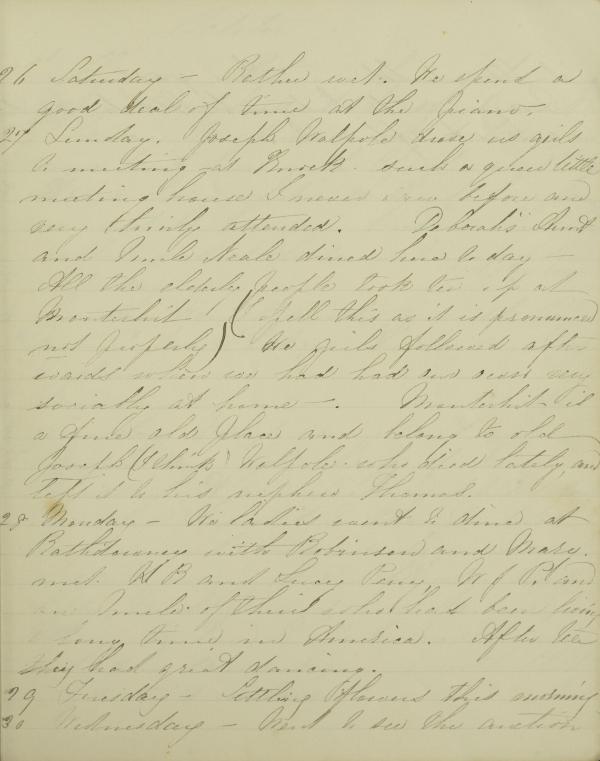 26 Saturday – Rather wet. We spend a
good deal of time at the piano.
27 Sunday. Joseph Walpole drove us girls
to meeting at Knock. such a queer little
meeting house I never saw before and
very thinly attended. Deborah's Aunt
and Uncle Neale dined here to day –
All the elderly people took tea up at
Monterhit (I spell this as it is pronounced
not properly) We girls followed after-
wards when we had had our own very
socially at home –. Monterhit is
a fine old place and belong to old
Joseph (I think) Walpole. who died lately, and
left it to his nephew Thomas.
28 Monday – We ladies went to dine at
Rathdowney with Robinson and Mary.
met H B and Lucy Perry, W J P. and
an Uncle of theirs who had been living
a long time in America. After tea
they had great dancing.
29 Tuesday – Settling flowers this morning
30 Wednesday – Went to see the auction